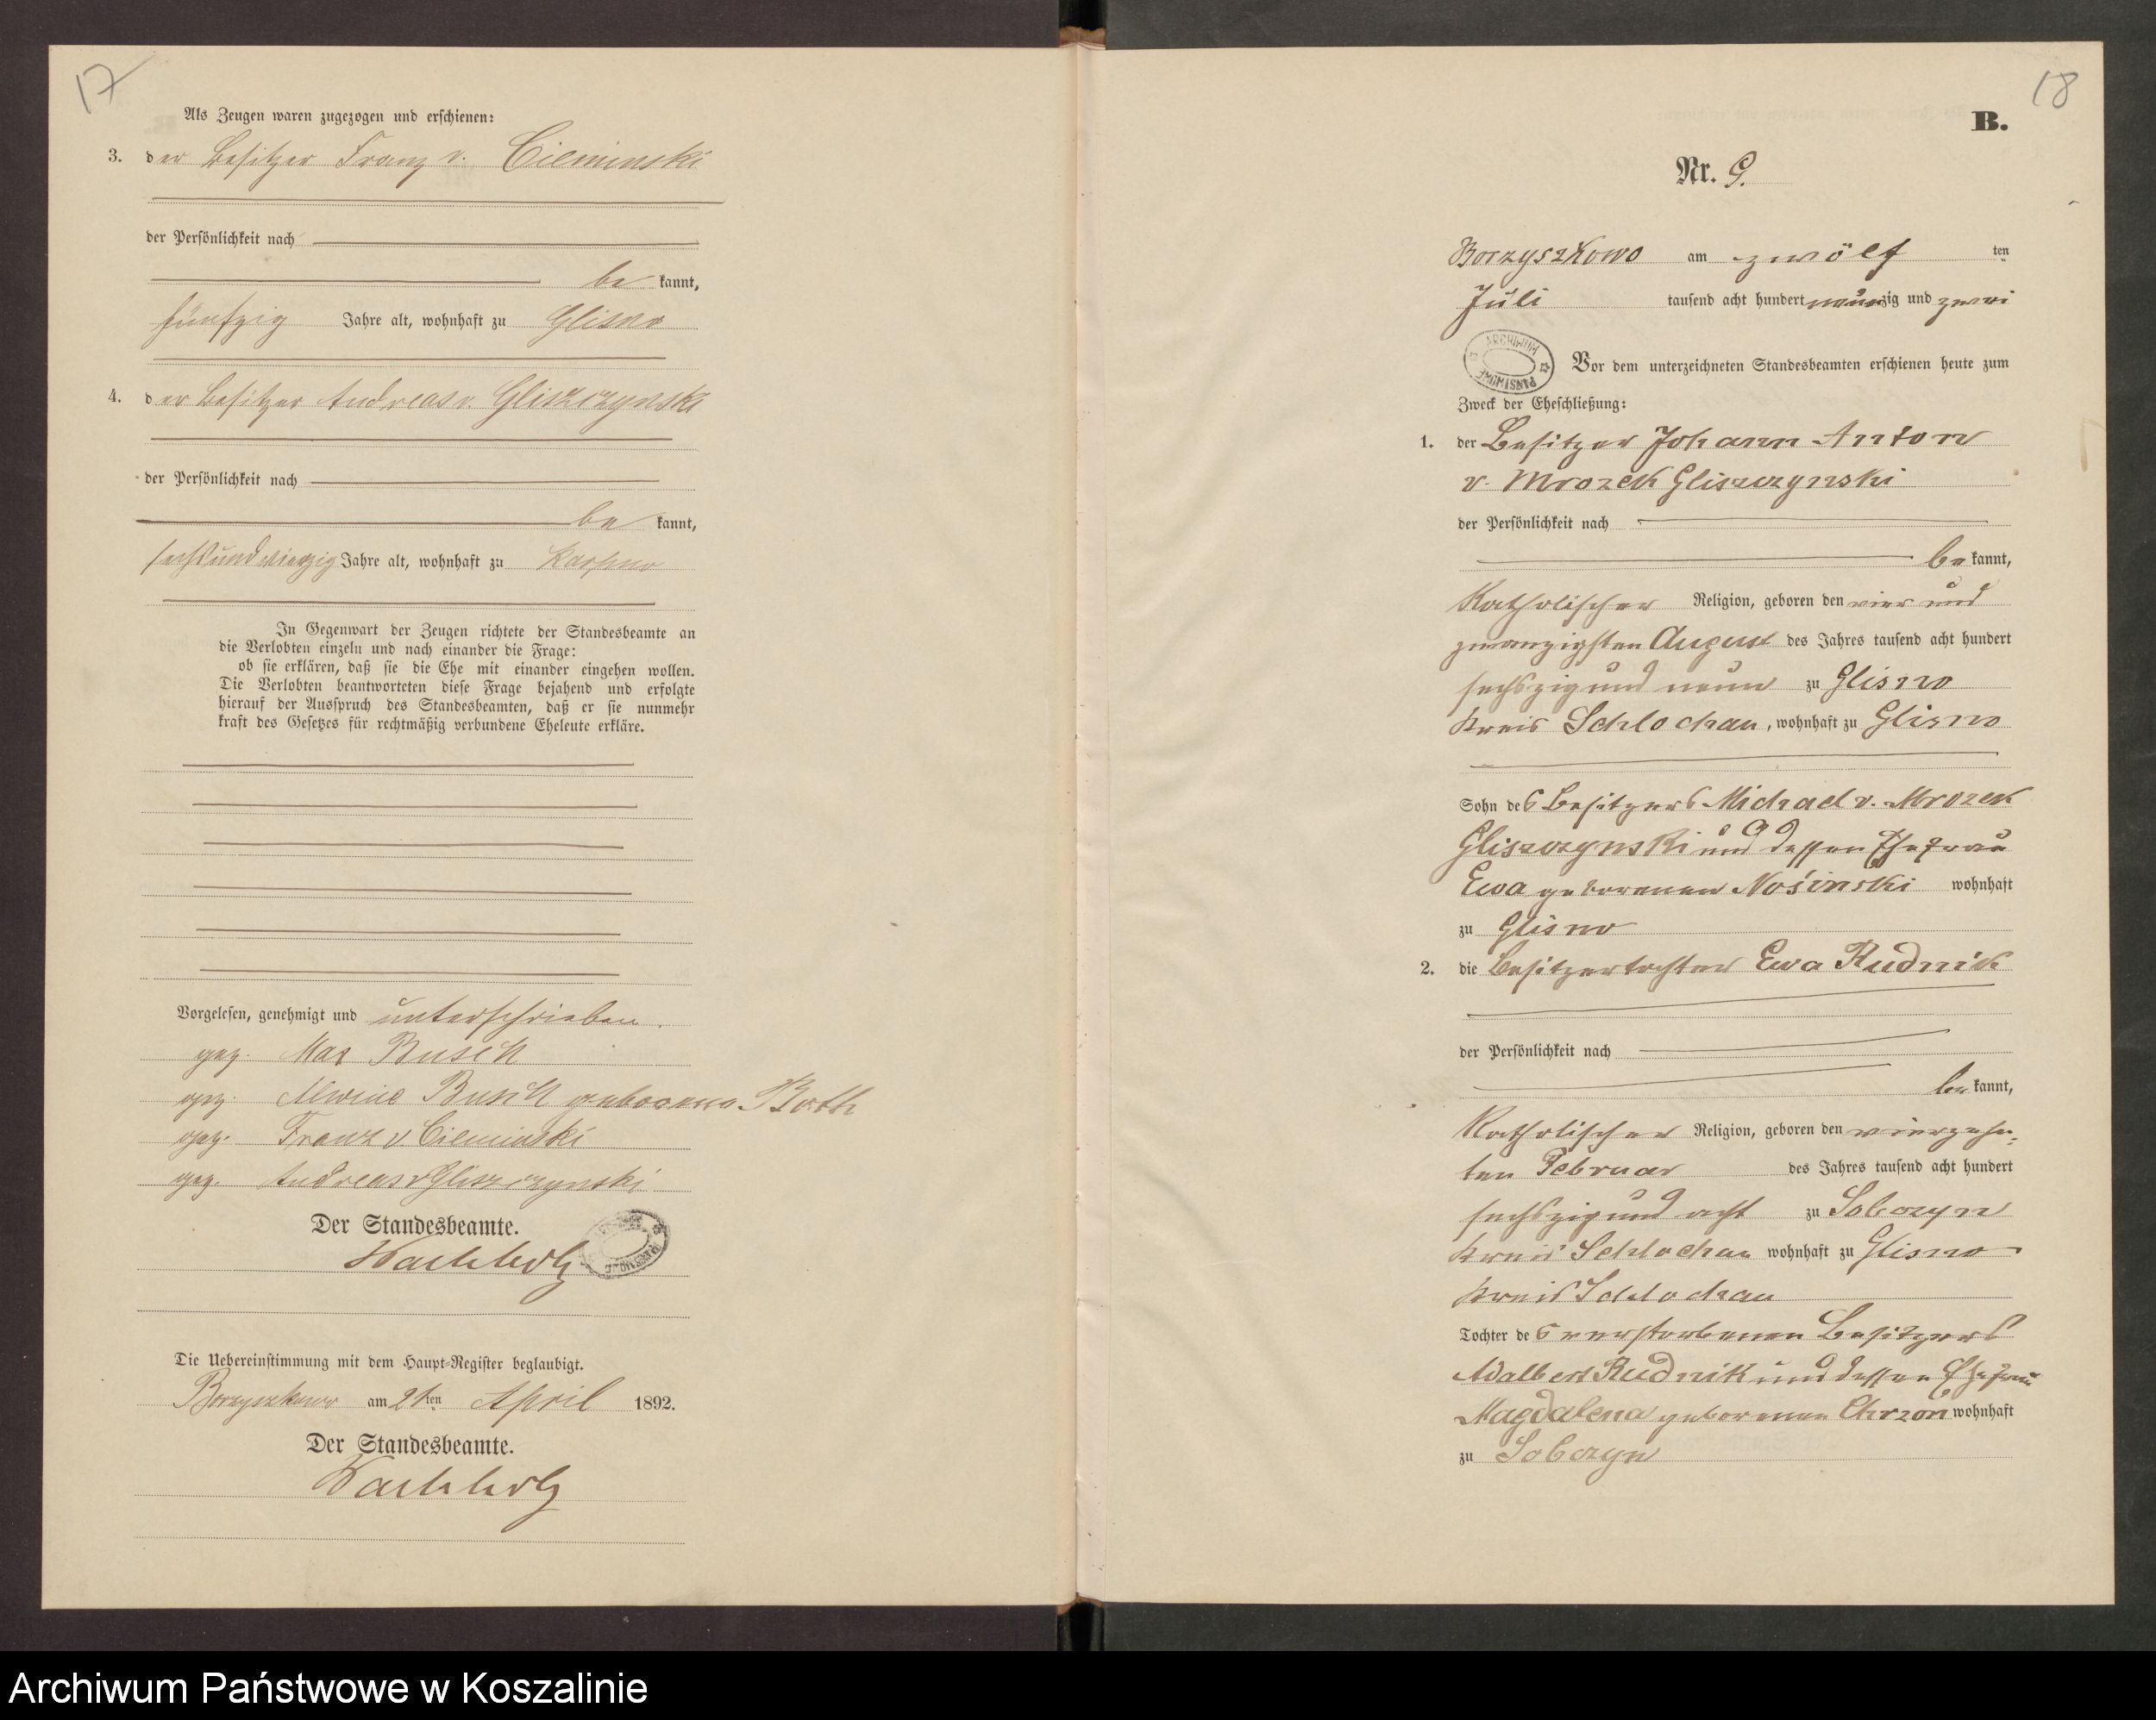 17
Als Zeugen waren zugezogen und erschienen:
3. der Besitzer Franz v. Cieminski
der Persönlichkeit nach
be kannt,
fünfzig Jahre alt, wohnhaft zu Glisno
4. der Besitzer Andreas v. Gliszczynski
der Persönlichkeit nach
be kannt,
sechsundvierzig Jahre alt, wohnhaft zu
In Gegenwart der Zeugen richtete der Standesbeamte an
die Verlobten einzeln und nach einander die Frage:
ob sie erklären, daß sie die Ehe mit einander eingehen wollen.
Die Verlobten beantworteten diese Frage bejahend und erfolgte
hierauf der Ausspruch des Standesbeamten, daß er sie nunmehr
kraft des Gesetzes für rechtmäßig verbundene Eheleute erkläre.
Vorgelesen, genehmigt und unterschrieben.
gez. Max Busch
gez. Alwine Busch geborene Both
gez. Franz v Cieminski
gez. Andreas v Gliszczynski
Der Standesbeamte.
Wachholz
Die Uebereinstimmung mit dem Haupt-Register beglaubigt.
Borzyszkowo am 21ten April 1892.
Der Standesbeamte.
Wachholz
18
B.
Nr. 9.
Borzyszkowo am zwölf ten
Juli tausend acht hundert neunzig und zwei
ARCHIWUM PAŃSTWOWE
Vor dem unterzeichneten Standesbeamten erschienen heute zum
Zweck der Eheschließung:
1. der Besitzer Johann Anton
v. Mrozek Gliszczynski
der Persönlichkeit nach
be kannt,
Katholischer Religion, geboren den vier und
zwanzigsten August des Jahres tausend acht hundert
sechszig und neun zu Glisno
Kreis Schlochau, wohnhaft zu Glisno
Sohn des Besitzers Michael v. Mrozek
Gliszczynski und dessen Ehefrau
Ewa geborenen Nosinski wohnhaft
zu Glisno
2. die Besitzertochter Ewa Rudnik
der Persönlichkeit nach
be kannt,
Katholischer Religion, geboren den vierzehn-
ten Februar des Jahres tausend acht hundert
sechszig und acht zu Sobczyn
Kreis Schlochau wohnhaft zu Glisno
Kreis Schlochau
Tochter des verstorbenen Besitzers
Adalbert Rudnik und dessen Ehefrau
Magdalena geborenen Chrzon wohnhaft
zu Sobczyn
Archiwum Państwowe w Koszalinie